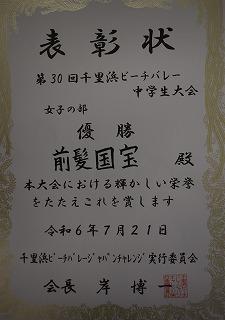 表彰状
第30回千里浜ビーチバレー
中学生大会
女子の部
優勝
前髪国宝 殿
本大会における輝かしい栄誉
をたたえこれを賞します
令和6年7月21日
千里浜ビーチバレージャパンチャレンジ実行委員会
会長 岸 博一